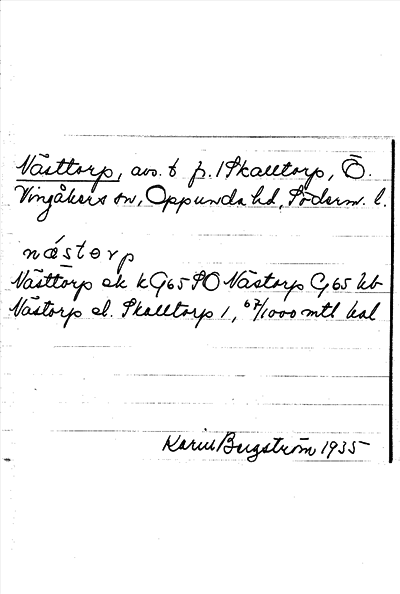 Nästtorp, avs. t p. 1 Skalltorp, Ö.
Vingåkers sn, Oppunda hd, Söderm. l.
næstorp
Nästtorp ek kG65 SO Nästorp G65 hb
Nästorp el. Skalltorp 1, 67/1000 mtl kal
Karin Bergström 1935